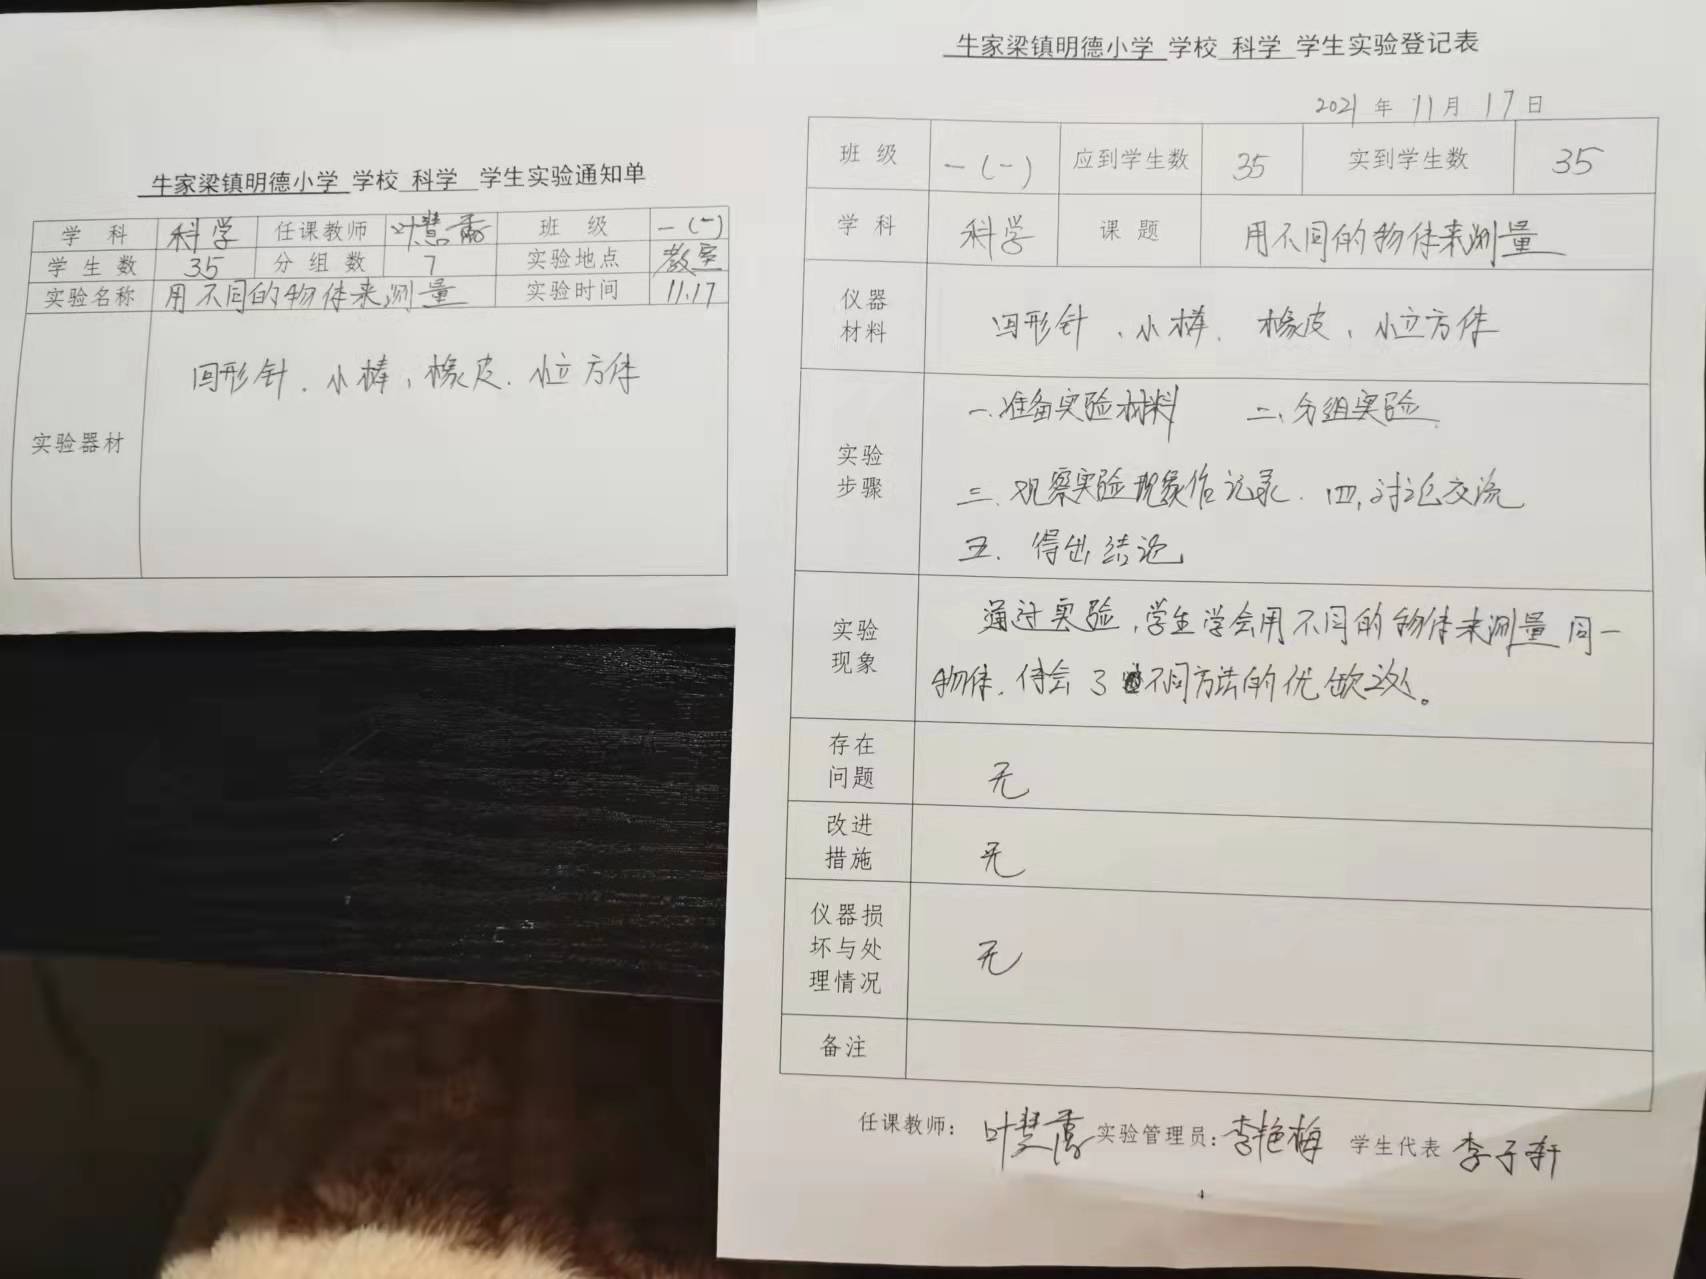 牛家梁镇明德小学 学校 科学 学生实验通知单
学科 科学 任课教师 叶慧 班级 一(一)
学生数 35 分组数 7 实验地点 教室
实验名称 用不同的物体来测量 实验时间 11.17
实验器材 回形针、小棒、橡皮、小立方体
牛家梁镇明德小学 学校 科学 学生实验登记表
2021年11月17日
班级 一(一) 应到学生数 35 实到学生数 35
学科 科学 课题 用不同的物体来测量
仪器
材料
回形针、小棒、橡皮、小立方体
实验
步骤
一.准备实验材料 二.分组实验
三.观察实验现象作记录. 四.讨论交流
五.得出结论
实验
现象
通过实验,学生学会用不同的物体来测量同一
物体.体会了不同方法的优缺处。
存在
问题
无
改进
措施
无
仪器损
坏与处
理情况
无
备注
任课教师: 叶慧 实验管理员:李艳梅 学生代表 李子轩
4